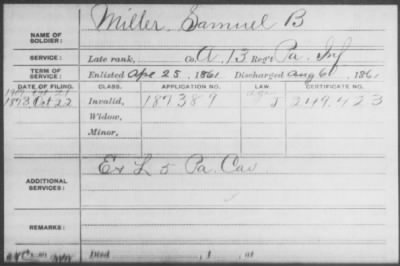 Miller, Samuel B
NAME OF SOLDIER:
SERVICE: Late rank, Co. A, 13 Reg't Pa. Inf
TERM OF SERVICE: Enlisted Apr 25, 1861 Discharged Aug 6, 1861
DATE OF FILING. CLASS. APPLICATION NO. LAW. CERTIFICATE NO.
1873 Oct 22 Invalid, 187389 249,423
Widow,
Minor,
ADDITIONAL SERVICES: Ex L 5 Pa. Cav.
REMARKS:
Died , 1 , at